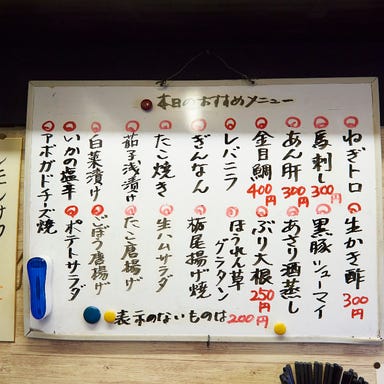 本日のおすすめメニュー
ねぎトロ
馬刺し 300円
あん肝 300円
金目鯛 400円
レバニラ
ぎんなん
たこ焼き
茄子浅漬け
白菜漬け
いかの塩辛
アボガドチーズ焼
生かき酢 300円
黒豚シューマイ
あさり酒蒸し
ぶり大根 250円
ほうれん草グラタン
栃尾揚げ焼
生ハムサラダ
たこ唐揚げ
ごぼう唐揚げ
ポテトサラダ
表示のないものは200円
レモンサワ